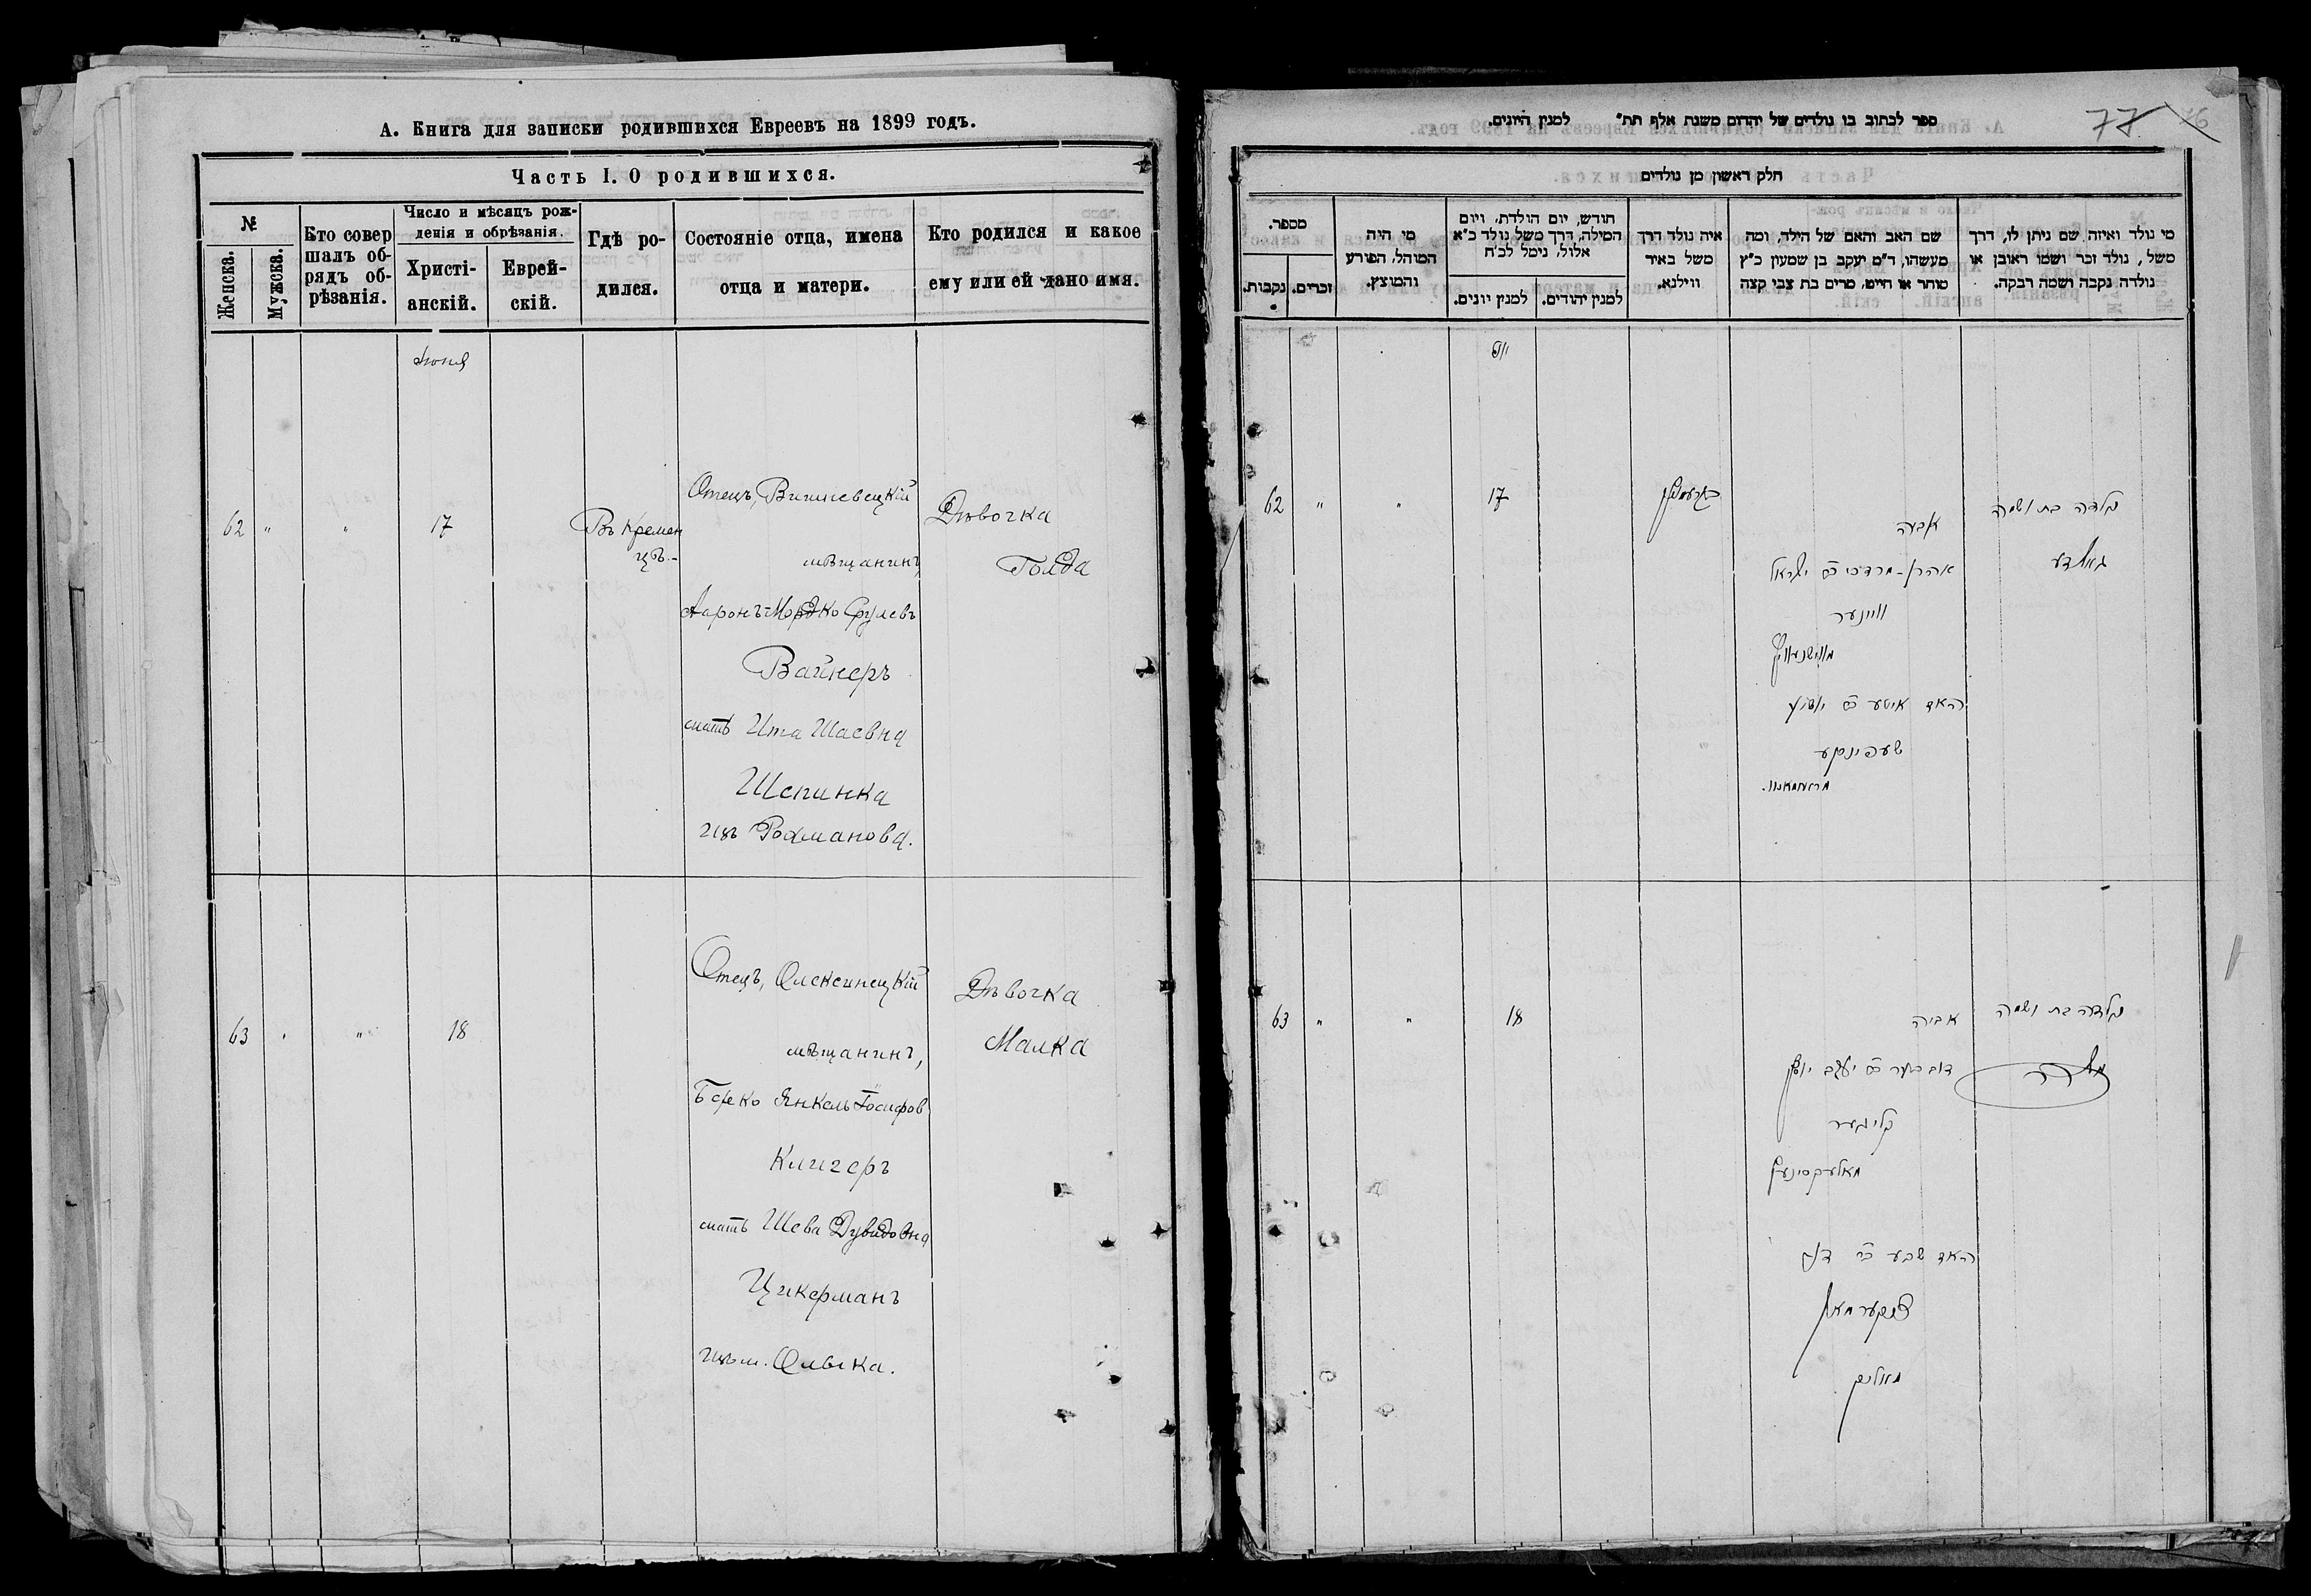 А. Книга для записки родившихся Евреевъ на 1899 годъ.
Часть I. О родившихся.
№
Женска.
Мужска.
Кто совер
шалъ об-
рядъ об-
рѣзанія.
Число и мѣсяцъ рож-
денія и обрѣзанія.
Христі-
анскій.
Еврей-
скій.
Гдѣ ро-
дился.
Состояніе отца, имена
отца и матери.
Кто родился и какое
ему или ей дано имя.
Іюня
62 " " 17
Въ Кремен
цѣ.-
Отецъ, Вишневецкій
мѣщанинъ,
Ааронъ-Мордко Срулевъ
Вайнеръ
мать Ита Шаевна
Шепинка
изъ Рохманова.
Дѣвочка
Голда
63 " " 18
Отецъ, Олексинецкій
мѣщанинъ,
Берко Янкель Іосифов
Клигеръ
мать Шева Дувидовна
Цикерманъ
изъ м. Олыка.
Дѣвочка
Малка
ספר לכתוב בו נולדים של יהדום משנת אלף תת" למנין היונים.
77
76
חלק ראשון מן נולדים
מספר.
נקבות.
זכרים.
מי היה
המוהל, הפורע
והמוצץ.
חודש, יום הולדת, ויום
המילה, דרך משל נולד כ"א
אלול, נימל לכ"ח
למנין יונים.
למנין יהודים.
איה נולד דרך
משל באיר
ווילנא.
שם האב והאם של הילד, ומה
מעשהו, ד"מ יעקב בן שמעון כ"ץ
סוחר או חייט, מרים בת צבי קצה
מי נולד ואיזה שם ניתן לו, דרך
משל, נולד זכר ושמו ראובן או
נולדה נקבה ושמה רבקה.
יוני
62 " " 17
אביה
אהרן-מרדכי ב"ר ישראל
וויינער
מווישנעוויץ
האד איטע ב"ר
שעפינקע
נולדה בת ושמה
גאלדע
63 " " 18
אביה
דוב בער ב"ר יעקב יוסף
קליגער
מאלעקסיניץ
האד שבע ב"ר דוד
צוקערמאן
מאליק
נולדה בת ושמה
מלכה